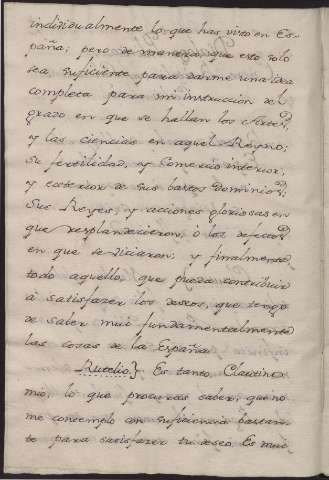 individualmente lo que has visto en Es-
paña; pero de manera que esto solo
sea suficiente para darme una Idea
completa para mi instruccion del
grado en que se hallan las Artes,
y las ciencias en aquel Reyno;
su fertilidad, y Comercio interior,
y exterior de sus bastos Dominios,
sus Reyes, y acciones gloriosas en
que resplandecieron, ò los defectos
en que se viciaron; y finalmente
todo aquello, que pueda contribuir
à satisfazer los deseos, que tengo
de saber mui fundamentalmente
las cosas de la España.
Rutelio} Es tanto,
mio, lo que procuras saber, que no
me contemplo con suficiencia bastan-
te para satisfazer tu deseo. Es mui